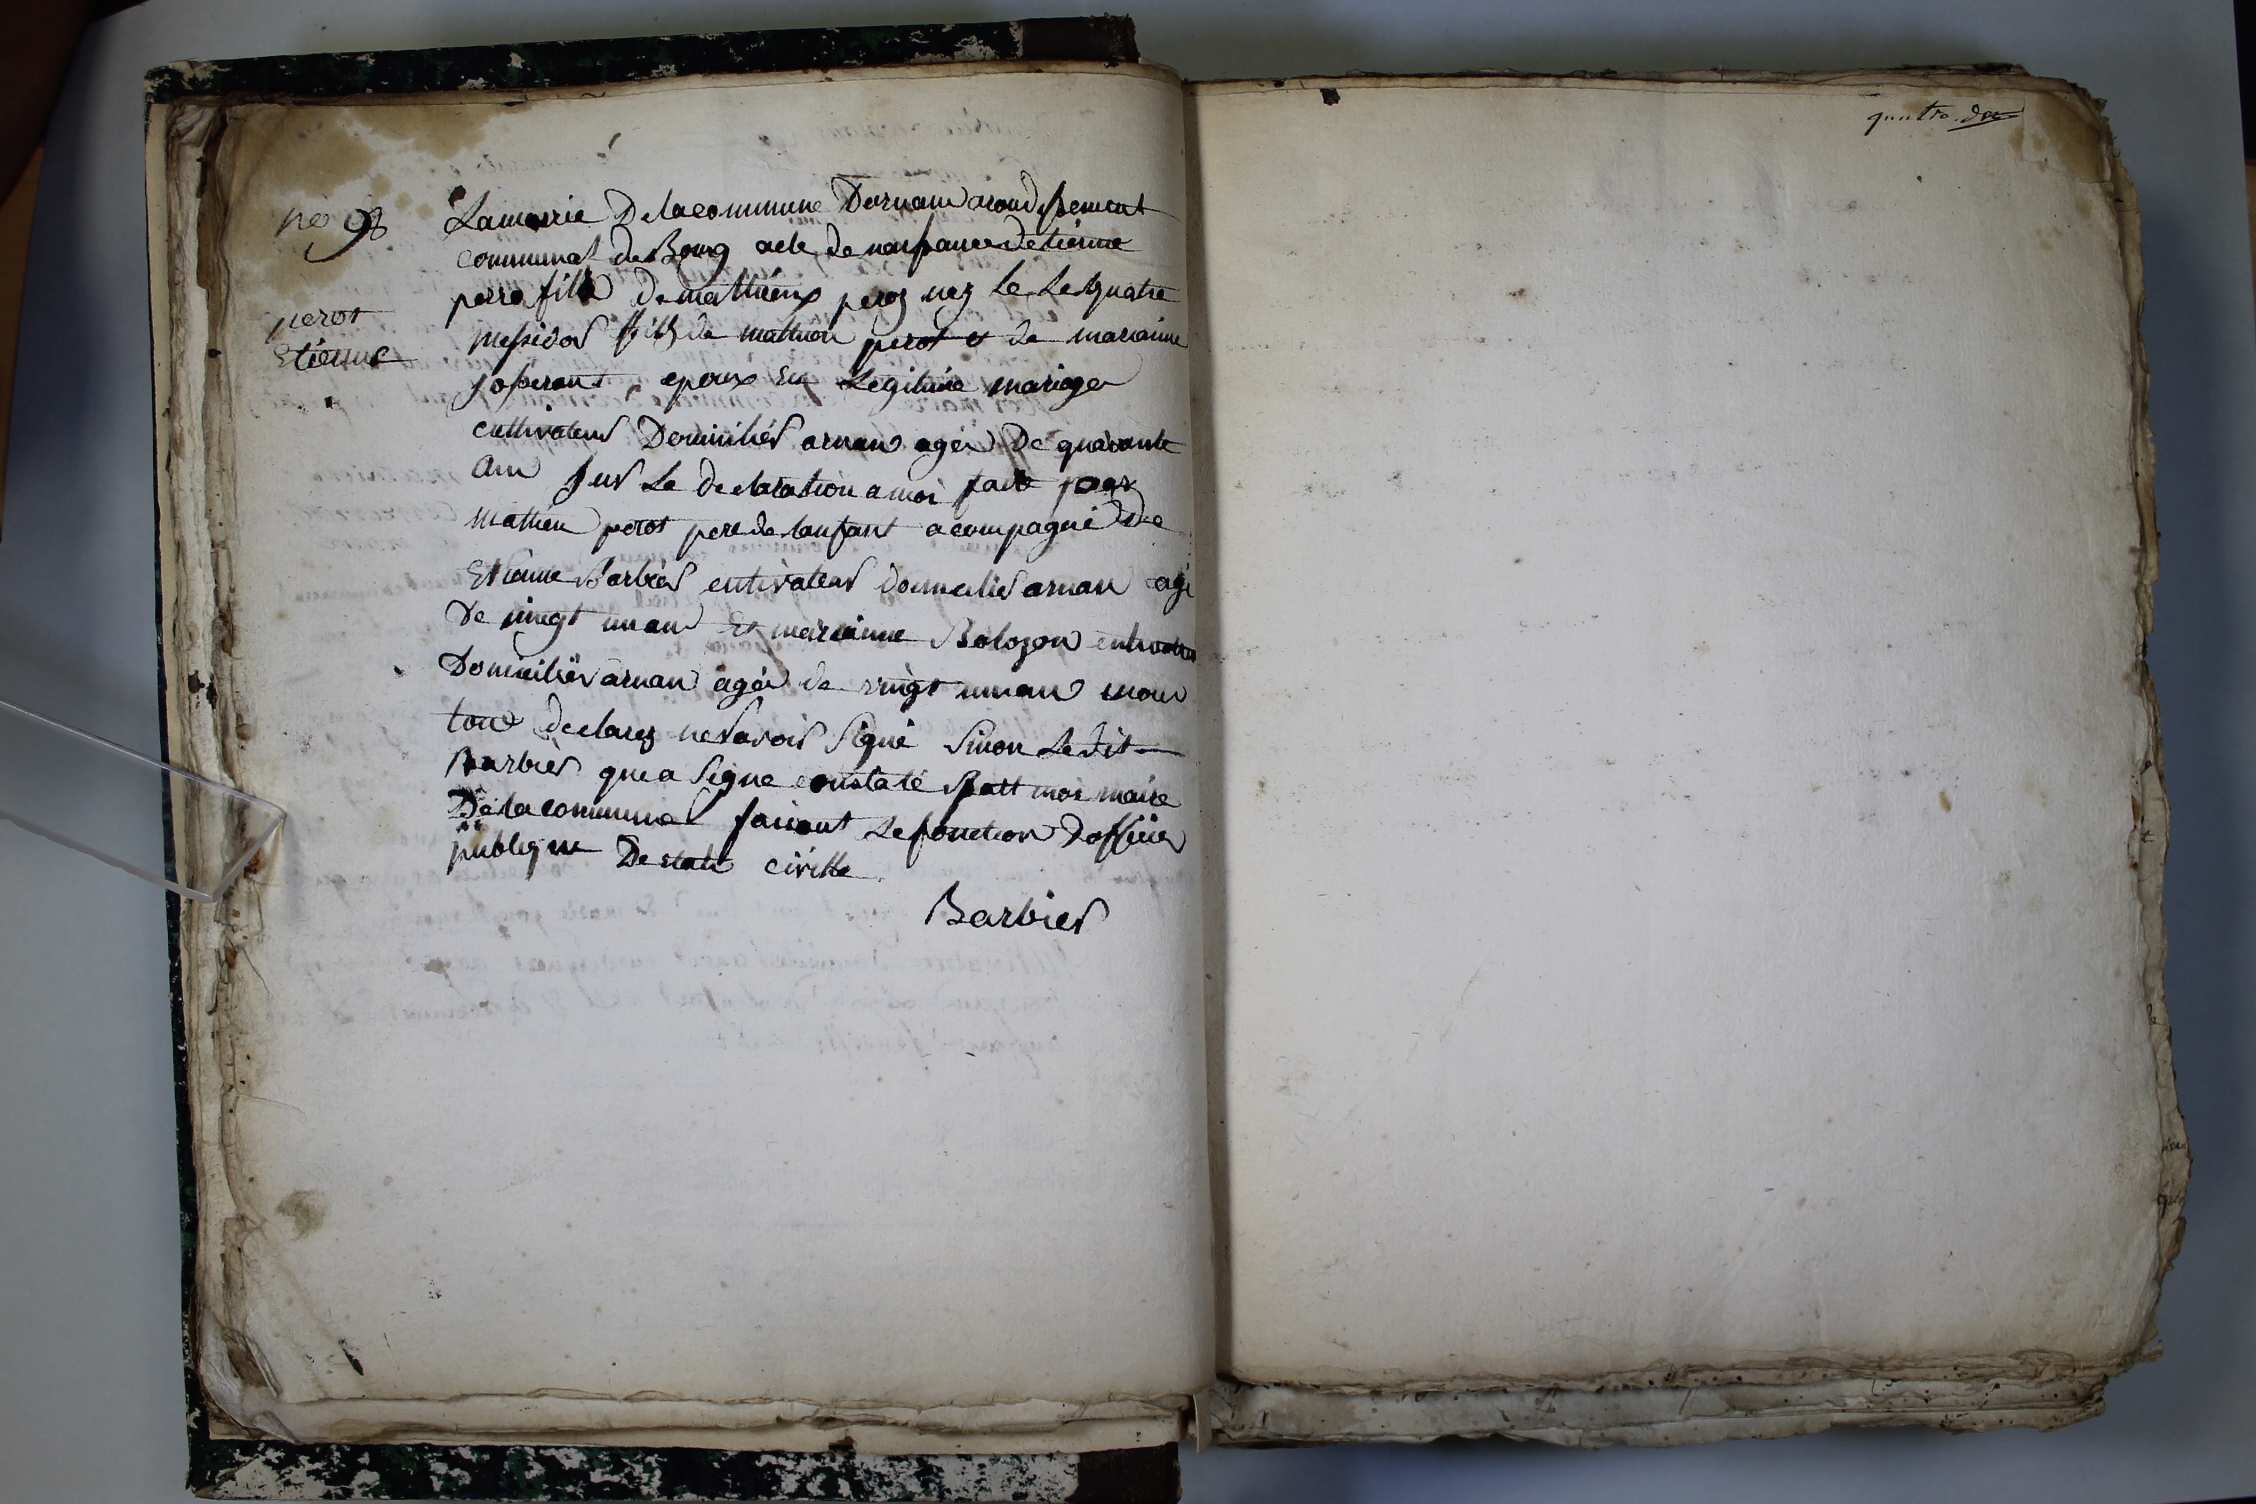 quatre
no 98
perot
Etienne
Lamairie Delacommune Darnan arondissement
communal de Bourg acte de naissance detienne
perro fils De mathieux peroz nez le Le quatre
messidor fils de mathieu perot et de marianne
josserant epoux En Legitime mariage
cultivateur Domicilies arnan agée De quarante
ans sur La declaration a moi faite par
Mathieu perot pere de lanfant acompagné De
Etienne Barbier cutivateur domicilie arnan agé
De vingt un an Et marianne Bolozon
Domiciliée arnan agée de vingt un an mon
tous declarez ne savoir signé sinon Ledit
Barbier que a signe constaté moi maire
De la commune faisant Le fonction Doffiier
publique De civille
Barbier